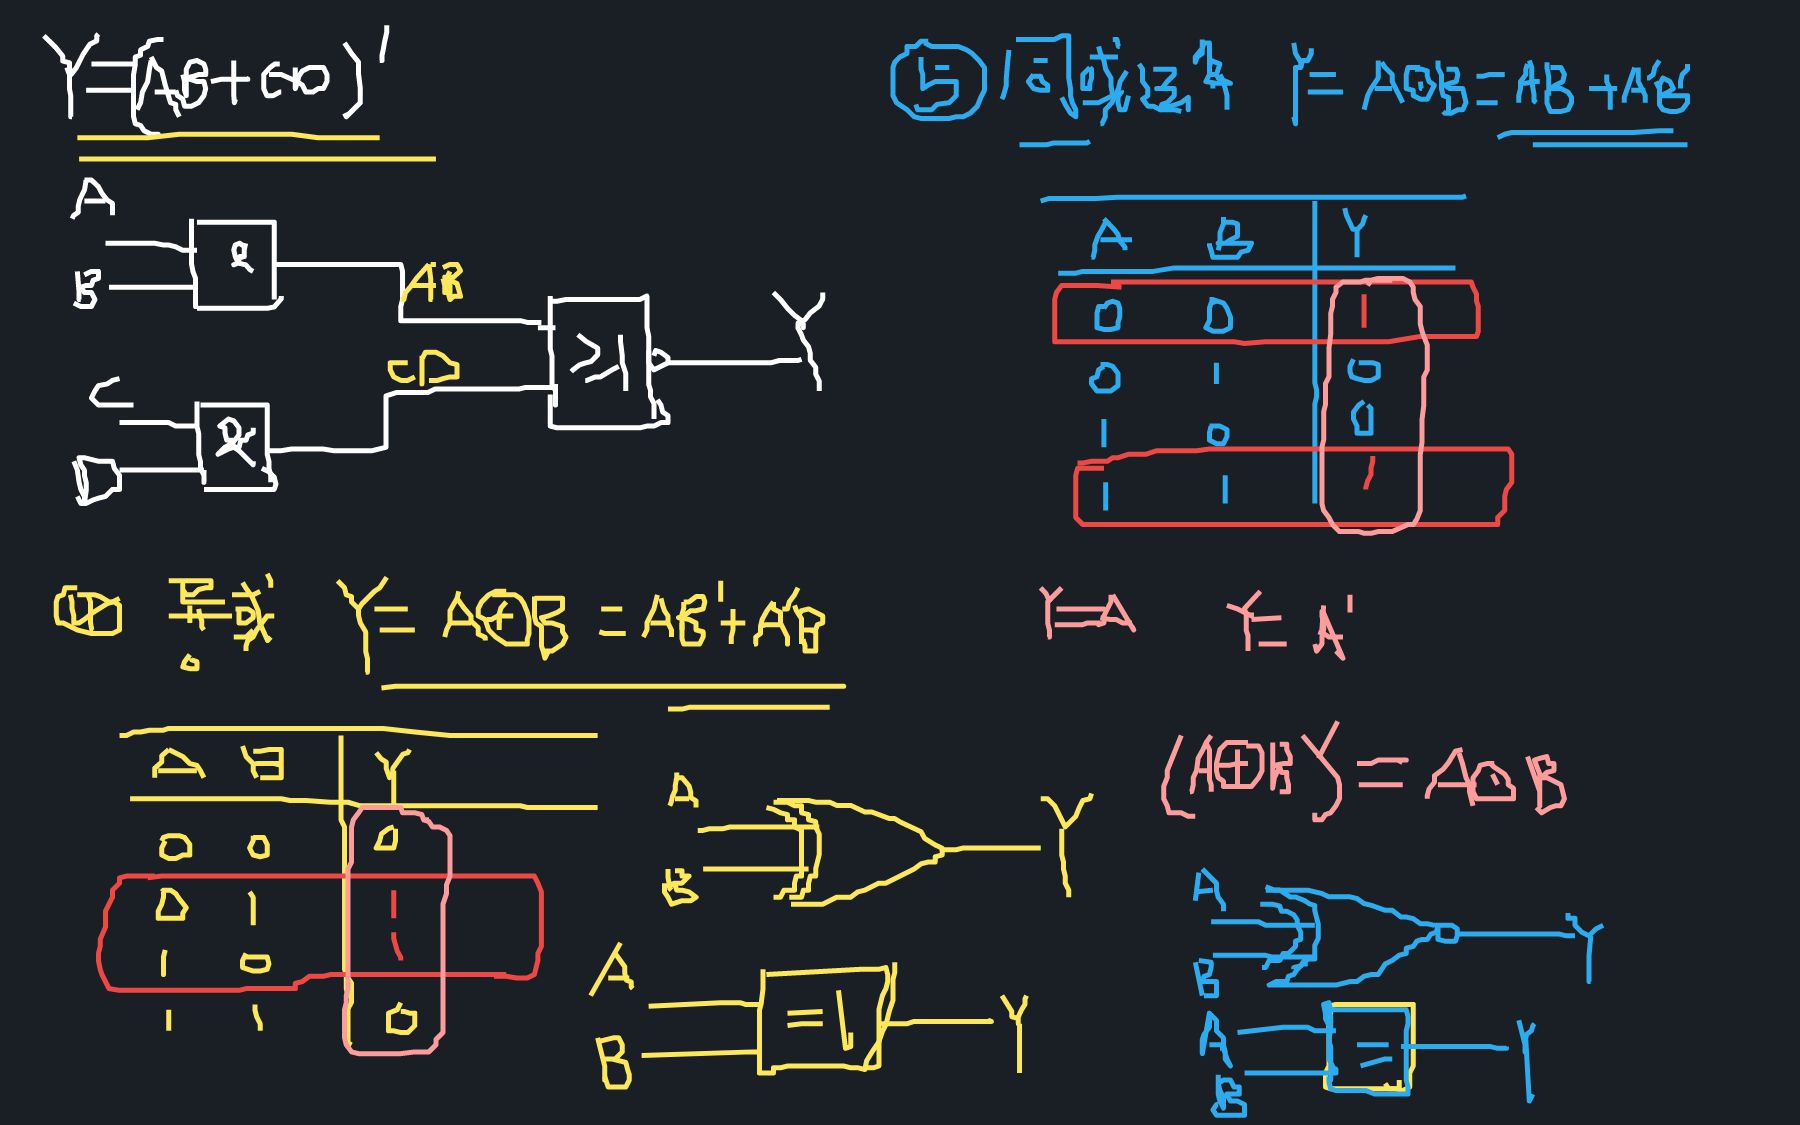 Y=(AB+CD)'
A
B
&
AB
C
D
&
CD
≥1
Y
④ 异或 Y=A⊕B=AB'+A'B
A B Y
0 0 0
0 1 1
1 0 1
1 1 0
A
B
Y
A
B
=1
Y
⑤ 同或逻辑 Y=A⊙B=AB+A'B'
A B Y
0 0 1
0 1 0
1 0 0
1 1 1
Y=A Y=A'
(A⊕B)'=A⊙B
A
B
Y
A
B
=
Y